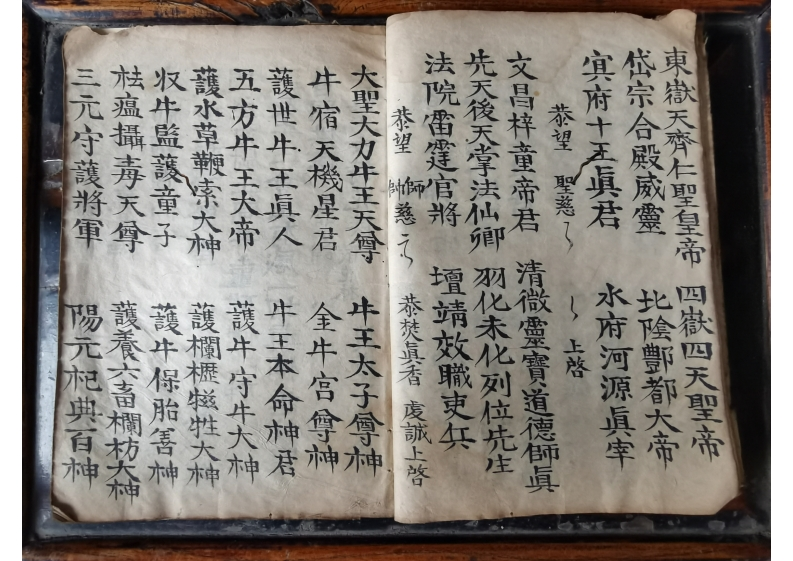 東嶽天齊仁聖皇帝 四嶽四天聖帝
岱宗合殿威靈 北陰酆都大帝
冥府十王眞君 水府河源眞宰
恭望 聖慈 上啓
文昌梓童帝君 清微靈寶道德師眞
先天後天掌法仙卿 羽化未化列位先生
法院雷霆官將 壇靖效職吏兵
恭望 帥師慈 恭焚眞香 虔誠上啓
大聖大力牛王天尊 牛王太子尊神
牛宿天機星君 金牛宫尊神
護世牛王眞人 牛王本命神君
五方牛王大帝 護牛守牛大神
護水草鞭索大神 護欄櫪牷牲大神
収牛監護童子 護牛保胎善神
祛瘟攝毒天尊 護養六畜欄枋大神
三元守護將軍 陽元祀典百神